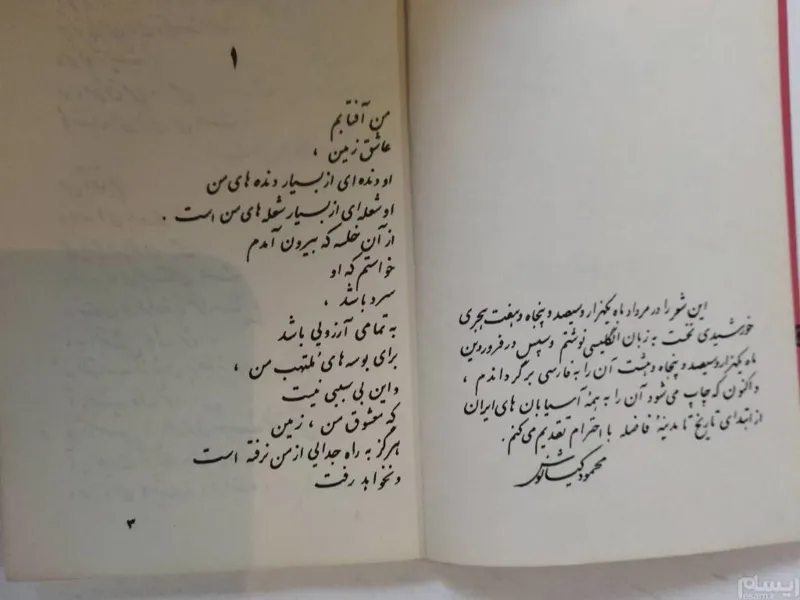 این شعر را در مرداد ماه یکهزار و سیصد و پنجاه و هفت هجری
خورشیدی نخست به زبان انگلیسی نوشتم و سپس در فروردین
ماه یکهزار و سیصد و پنجاه و هشت آن را به فارسی برگرداندم ،
و اکنون که چاپ می‌شود آن را به همهٔ آسیابان های ایران
از ابتدای تاریخ تا مدینهٔ فاضله با احترام تقدیم می‌کنم .
محمود کیانوش
۱
من آفتابم
عاشق زمین ،
او دنده ای از بسیار دنده های من
او شعله ای از بسیار شعله های من است .
از آن خلسه که بیرون آمدم
خواستم که او
سرد باشد ،
به تمامی آرزویی باشد
برای بوسه های ملتهب من ،
و این بی سببی نیست
که معشوق من ، زمین
هرگز به راه جدایی از من نرفته است
و نخواهد رفت
۳
ایسام
esam.ir